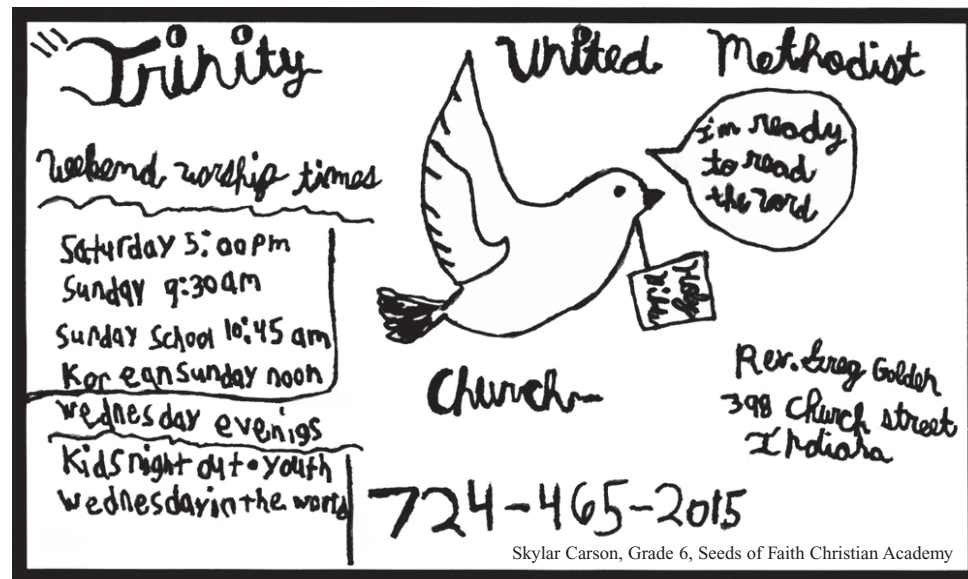 Trinity United Methodist
weekend worship times
Saturday 5:00 pm
Sunday 9:30 am
Sunday School 10:45 am
Korean Sunday noon
Wednesday evenigs
Kids night out • youth
Wednesday in the word
I'm ready
to read
the word
Holy
Bible
Church
Rev. Greg Golden
398 Church street
Indiana
724-465-2015
Skylar Carson, Grade 6, Seeds of Faith Christian Academy